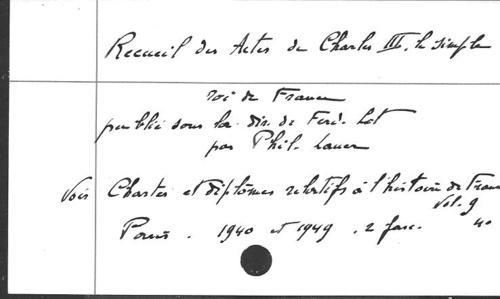 Recueil des Actes de Charles III, le simple
roi de France
publié sous la dir. de Ferd. Lot
par Phil. Lauer
Voir Chartes et diplômes relatifs à l'histoire de France
Vol. 9
Paris. 1940 et 1949. 2 fasc. 4o